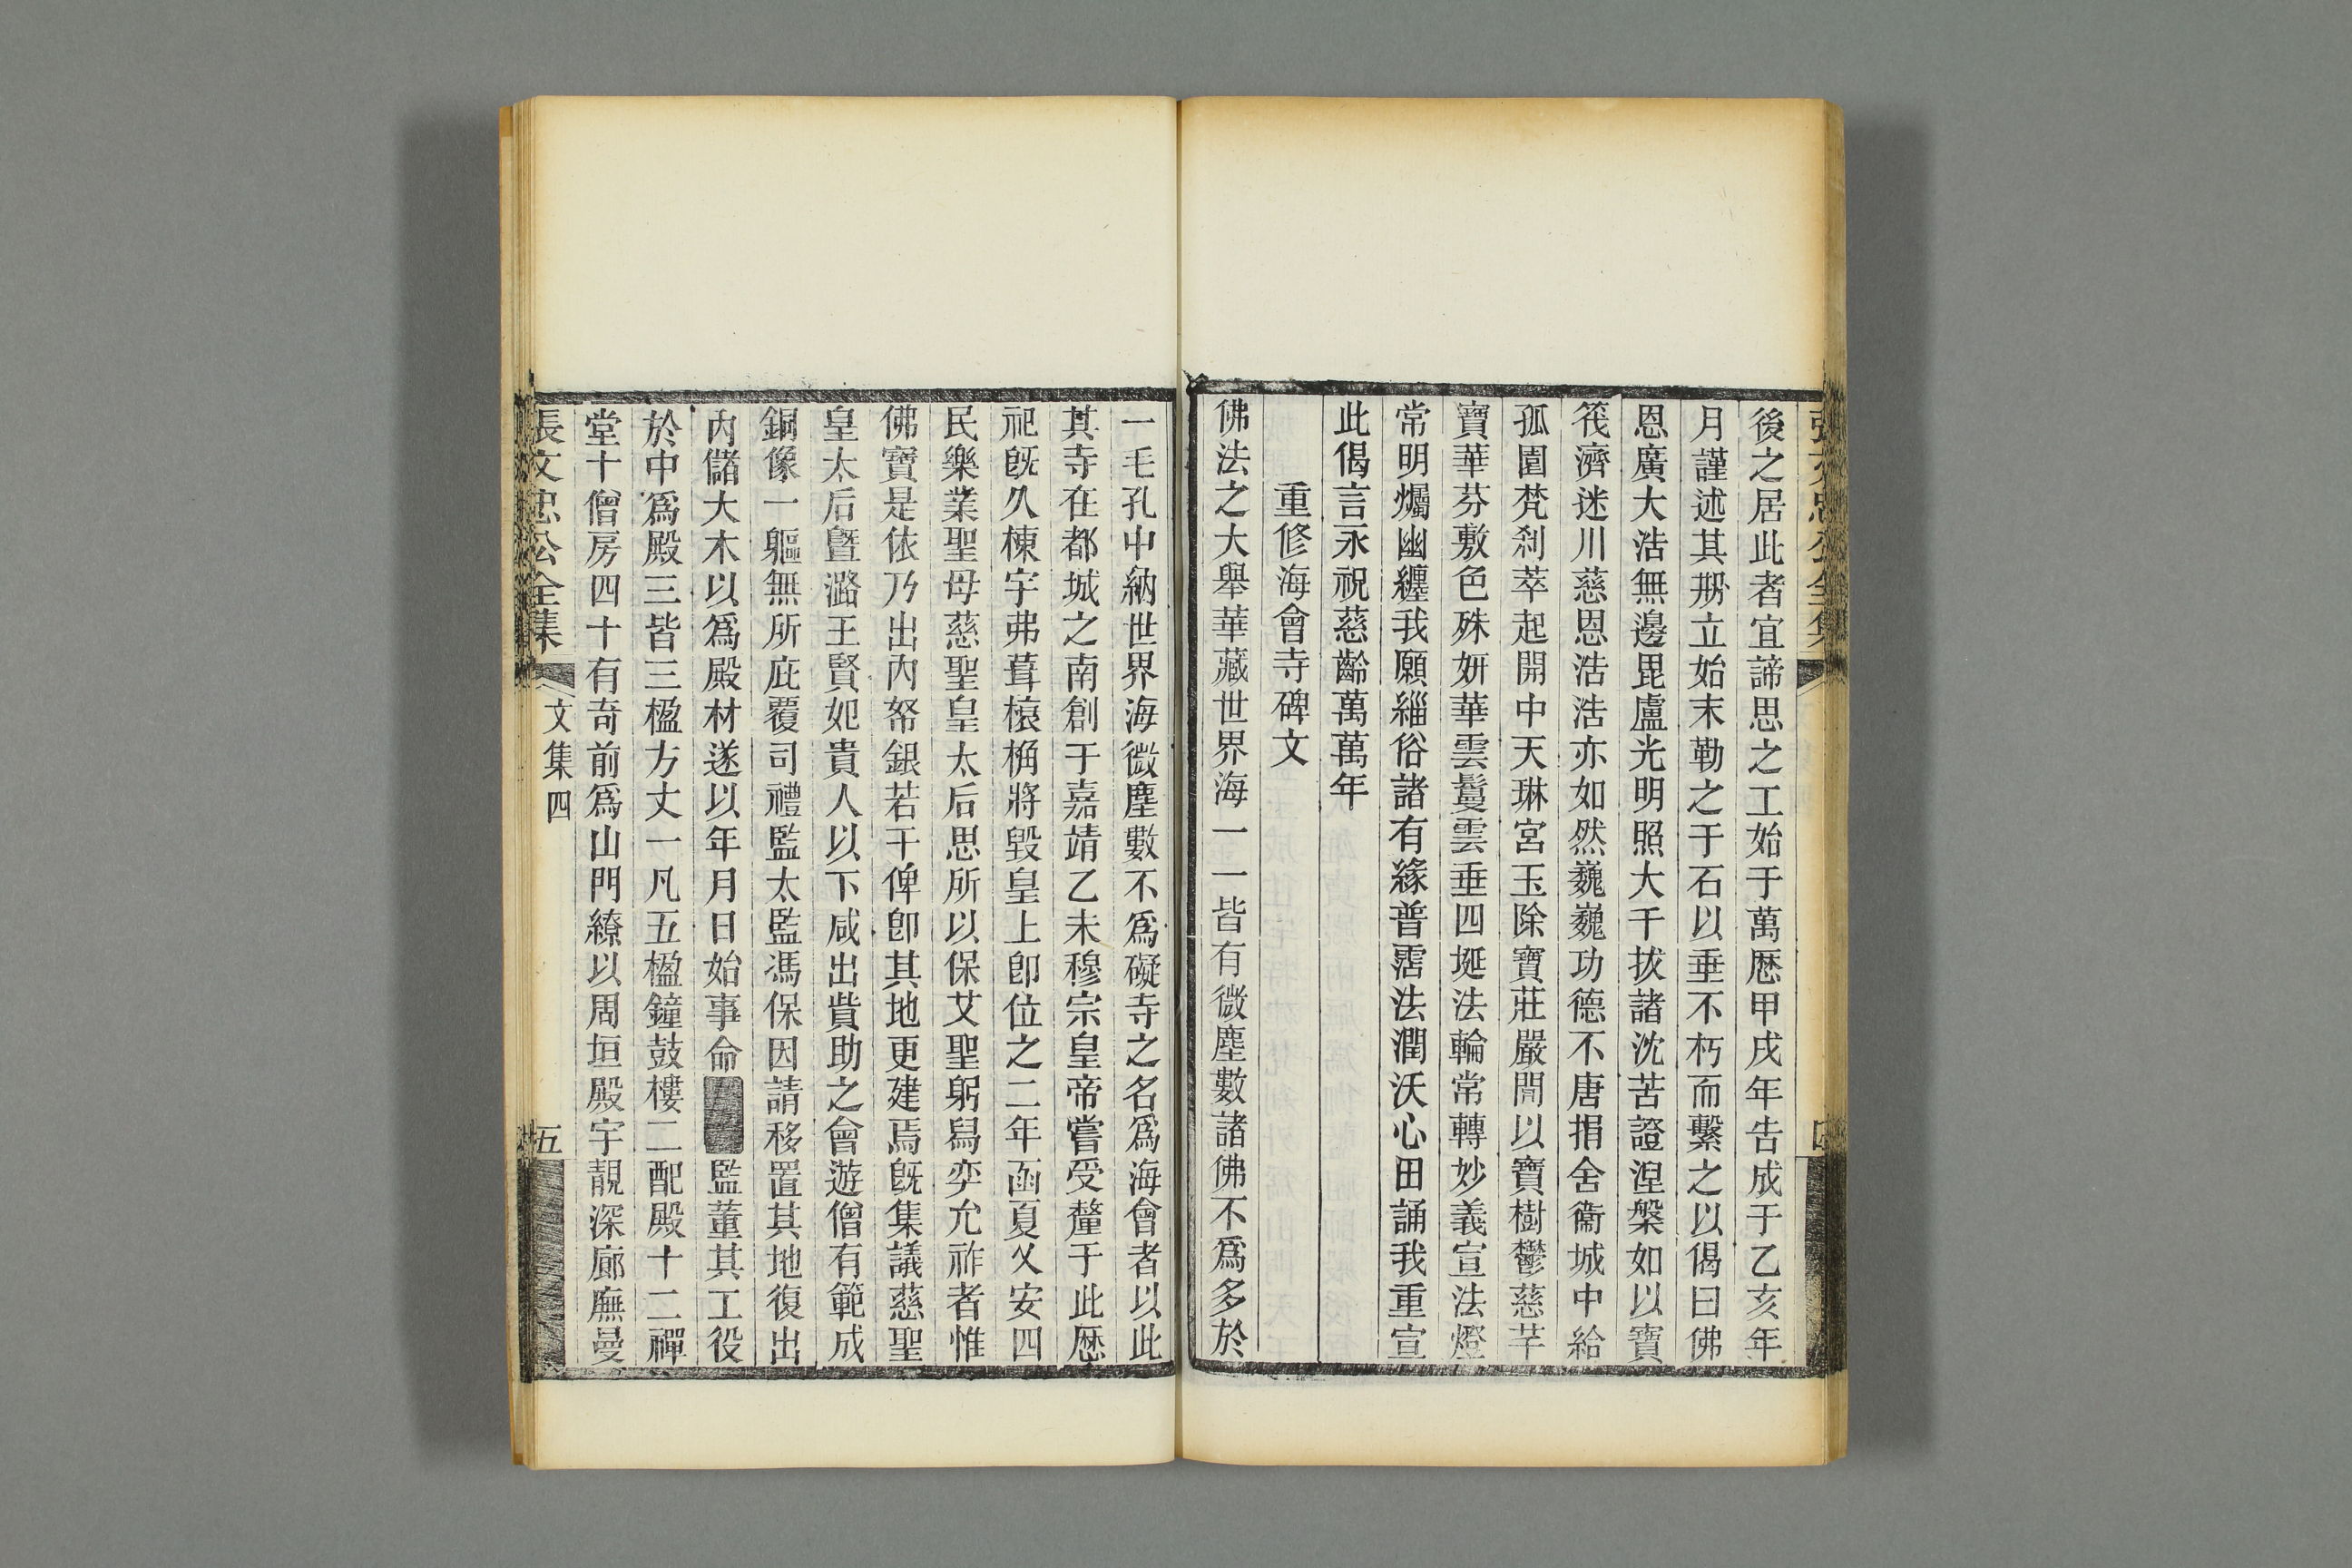 後之居此者宜諦思之工始于萬歷甲戌年告成于乙亥年
月謹述其剏立始末勒之于石以垂不朽而繫之以偈曰佛
恩廣大浩無邊毘盧光明照大千拔諸沈苦證涅槃如以寶
筏濟迷川慈恩浩浩亦如然巍巍功德不唐捐舍衞城中給
孤園梵刹萃起開中天琳宮玉除寶莊嚴間以寶樹鬱慈芊
寶華芬敷色殊妍華雲鬘雲垂四埏法輪常轉妙義宣法燈
常明爥幽纒我願緇俗諸有緣普霑法潤沃心田誦我重宣
此偈言永祝慈齡萬萬年
重修海會寺碑文
佛法之大舉華藏世界海一一皆有微塵數諸佛不爲多於
一毛孔中納世界海微塵數不爲礙寺之名爲海會者以此
其寺在都城之南創于嘉靖乙未穆宗皇帝嘗受釐于此歷
祀旣久棟宇弗葺榱桷將毀皇上卽位之二年函夏乂安四
民樂業聖母慈聖皇太后思所以保艾聖躬舄奕允祚者惟
佛寶是依乃出內帑銀若干俾卽其地更建焉旣集議慈聖
皇太后曁潞王賢妃貴人以下咸出貲助之會遊僧有範成
銅像一軀無所庇覆司禮監太監馮保因請移置其地復出
內儲大木以爲殿材遂以年月日始事命監董其工役
於中爲殿三皆三楹方丈一凡五楹鐘鼓樓二配殿十二禪
堂十僧房四十有奇前爲山門繚以周垣殿宇靚深廊廡曼
張文忠公全集 文集四 五